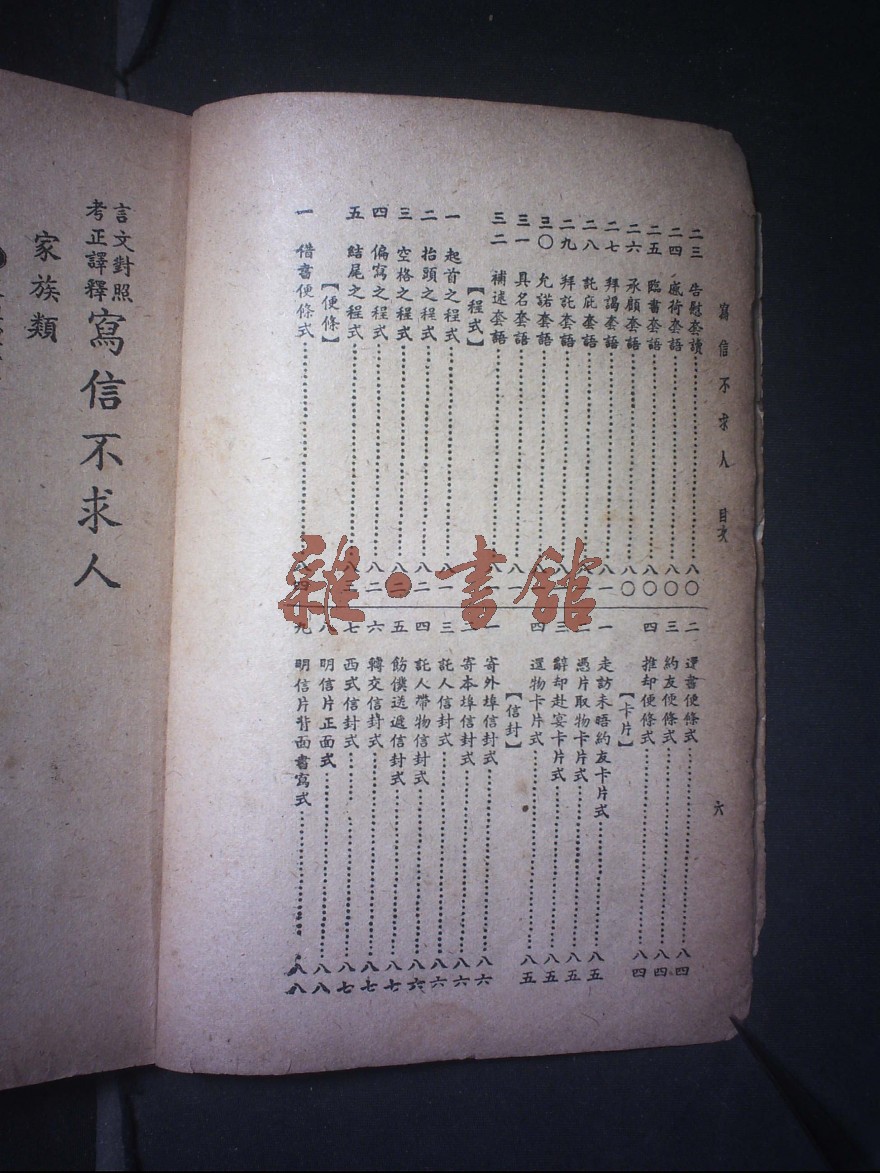 寫信不求人　目次
六
二三　告慰套讀……八〇
二四　感荷套語……八〇
二五　臨書套語……八〇
二六　承顧套語……八〇
二七　拜謁套語……八一
二八　託庇套語
二九　拜託套語
三〇　允諾套語
三一　具名套語
三二　補述套語
【程式】
一　起首之程式……八一
二　抬頭之程式……八二
三　空格之程式
四　偏寫之程式……八二
五　結尾之程式
【便條】
一　借書便條式……八四
二　還書便條式……八四
三　約友便條式……八四
四　推却便條式……八四
【卡片】
一　走訪未晤約友卡片式……八五
二　憑片取物卡片式……八五
三　辭却赴宴卡片式……八五
四　還物卡片式……八五
【信封】
一　寄外埠信封式……八六
二　寄本埠信封式……八六
三　託人信封式……八六
四　託人帶物信封式……八六
五　飭僕送遞信封式……八七
六　轉交信封式……八七
七　西式信封式……八七
八　明信片正面式……八八
九　明信片背面書寫式……八八
言文對照
考正譯釋
寫信不求人
家族類
雜·書館